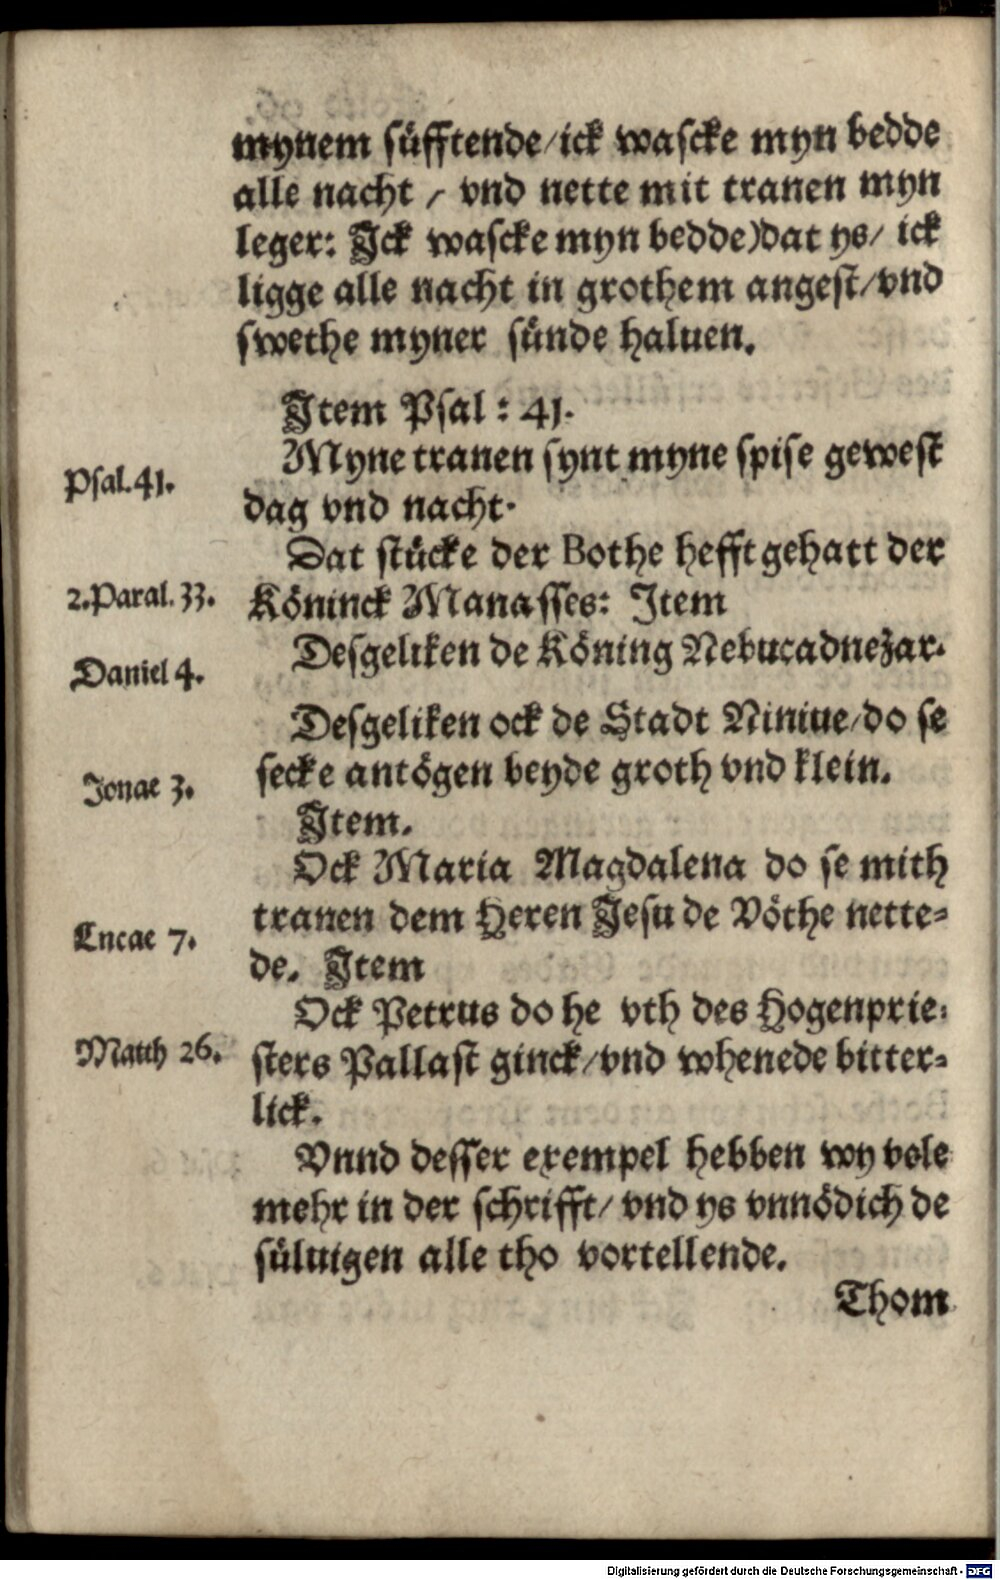 mynem süfftende/ick wascke myn bedde
alle nacht / vnd nette mit tranen myn
leger: Ick wascke myn bedde)dat ys/ ick
ligge alle nacht in grothem angest/vnd
swethe myner sünde haluen.
Item Psal : 41.
Psal.41.
Myne tranen synt myne spise gewest
dag vnd nacht.
Dat stücke der Bothe hefft gehatt der
2.Paral. 33.
Köninck Manasses: Item
Daniel 4.
Desgeliken de Köning Nebucadnezar.
Desgeliken ock de Stadt Niniue/do se
Jonae 3.
secke antögen beyde groth vnd klein.
Item.
Ock Maria Magdalena do se mith
Lucae 7.
tranen dem Heren Jesu de Vöthe nette=
de. Item
Ock Petrus do he vth des Hogenprie=
Matth 26.
sters Pallast ginck/vnd whenede bitter=
lick.
Vnnd desser exempel hebben wy vele
mehr in der schrifft/ vnd ys vnnödich de
süluigen alle tho vortellende.
Thom
Digitalisierung gefördert durch die Deutsche Forschungsgemeinschaft - DFG